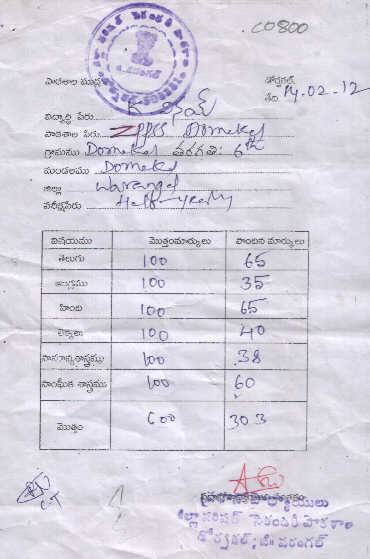 C0800
పాఠశాల ముద్ర
డోర్నకల్
తేది. 14-02-12
విద్యార్థి పేరు K
పాఠశాల పేరు ZPPSS Dornakal
గ్రామము Dornakal తరగతి: 6th
మండలము Dornakal
జిల్లా Warangal
పరీక్షపేరు Half-yearly
విషయము మొత్తంమార్కులు పొందిన మార్కులు
తెలుగు 100 65
ఆంగ్లము 100 35
హిందీ 100 65
లెక్కలు 100 40
సామాన్యశాస్త్రము 100 38
సాంఘీక శాస్త్రము 100 60
మొత్తం 600 303
C.T
జిల్లా పరిషత్ సెకండరి పాఠశాల
డోర్నకల్, జి॥ వరంగల్